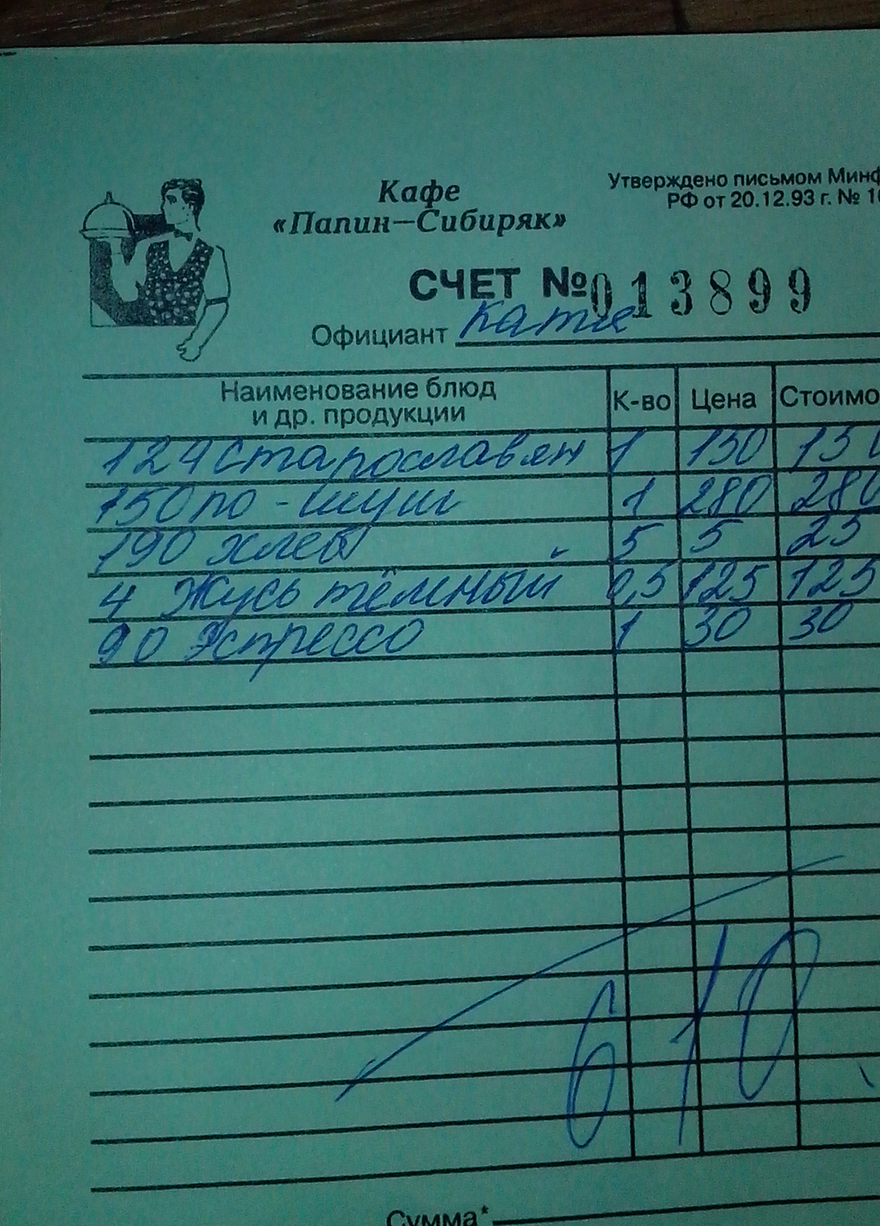 Кафе
«Папин—Сибиряк»
Утверждено письмом Минф
РФ от 20.12.93 г. № 16
СЧЕТ № 013899
Официант Катя
Наименование блюд и др. продукции К-во Цена Стоимо
124 Старославян 1 150 150
150 по - 1 280 280
190 хлеб 5 5 25
4 Жусь тёмный 0,5 125 125
90 Эспрессо 1 30 30
610
Сумма*